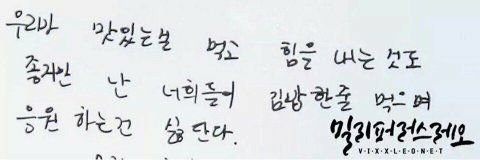 우리만 맛있는걸 먹고 힘을 내는 것도
좋지만 난 너희들이 김밥한줄 먹으며
응원 하는건 싫단다.
밀리퍼러스레오
VIXXLEONET